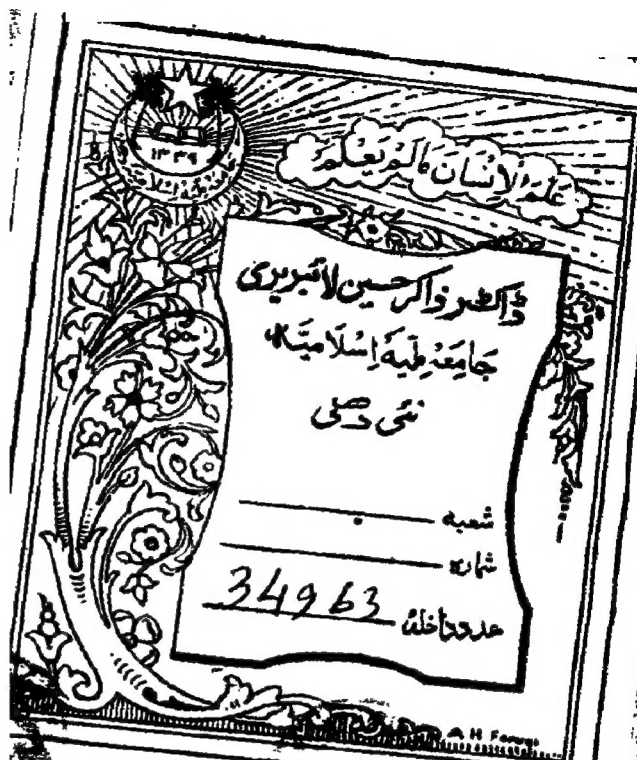 ۱۳۳۹
عَلَّمَ الْاِنْسَانَ مَالَمْ يَعْلَمْ
ڈاکٹر ذاکر حسین لائبریری
جَامِعَہ مِلّیہ اِسْلَامیَہ،
نئی دھلی
شعبہ
شمارہ
عدد داخلہ 34963
A H Farooqi